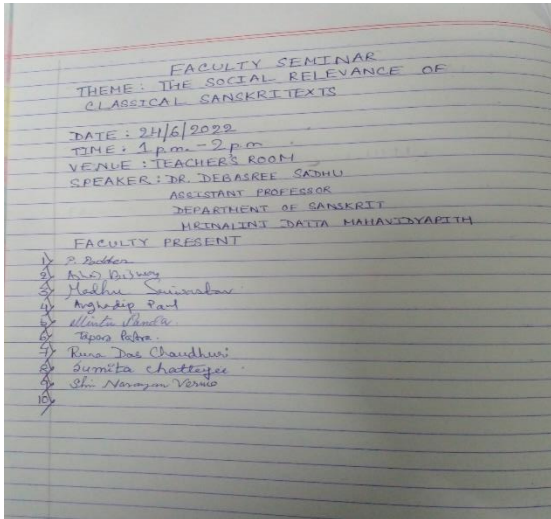 FACULTY SEMINAR
THEME: THE SOCIAL RELEVANCE OF
CLASSICAL SANSKRITEXTS
DATE: 24/6/2022
TIME: 1 pm - 2 pm
VENUE: TEACHER'S ROOM
SPEAKER: DR. DEBASREE SADHU
ASSISTANT PROFESSOR
DEPARTMENT OF SANSKRIT
MRINALINI DATTA MAHAVIDYAPITH
FACULTY PRESENT
1)
2)
3) Madhu
4) Arghadip Paul
5) Mintu Panda
6) Tapas
7) Runa Das Chaudhuri
8) Sumita Chatterjee
9) Narayan
10)